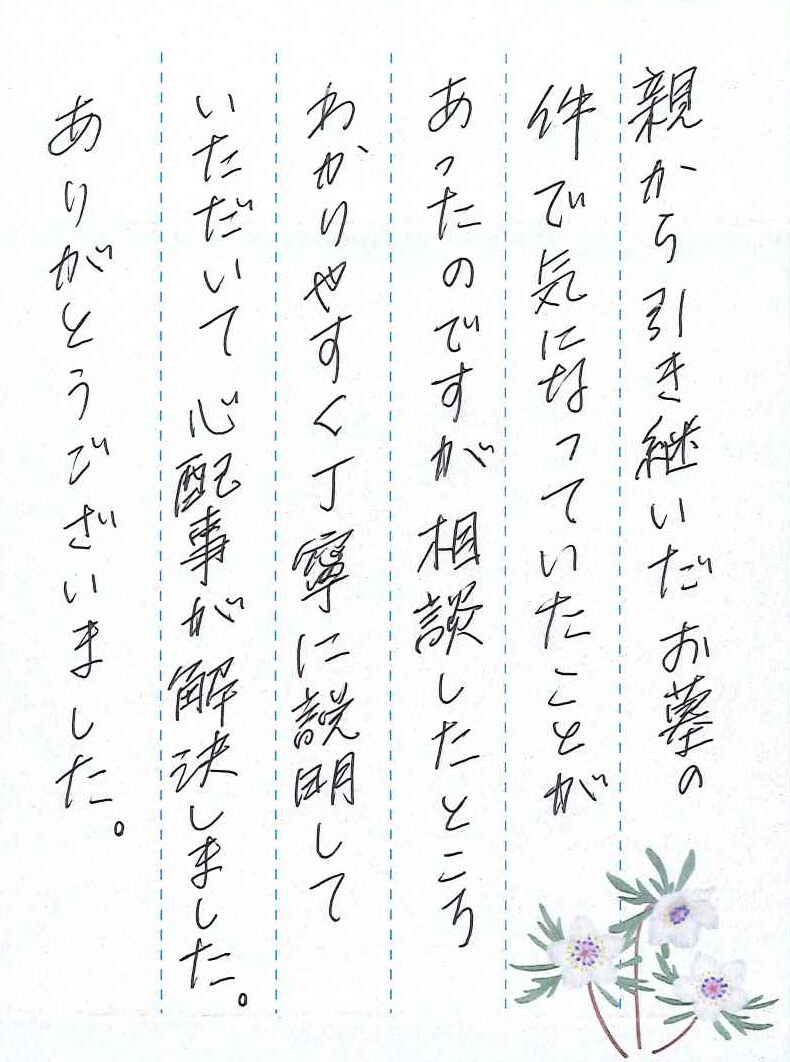 親から引き継いだお墓の
件で気になっていたことが
あったのですが相談したところ
わかりやすく丁寧に説明して
いただいて心配事が解決しました。
ありがとうございました。